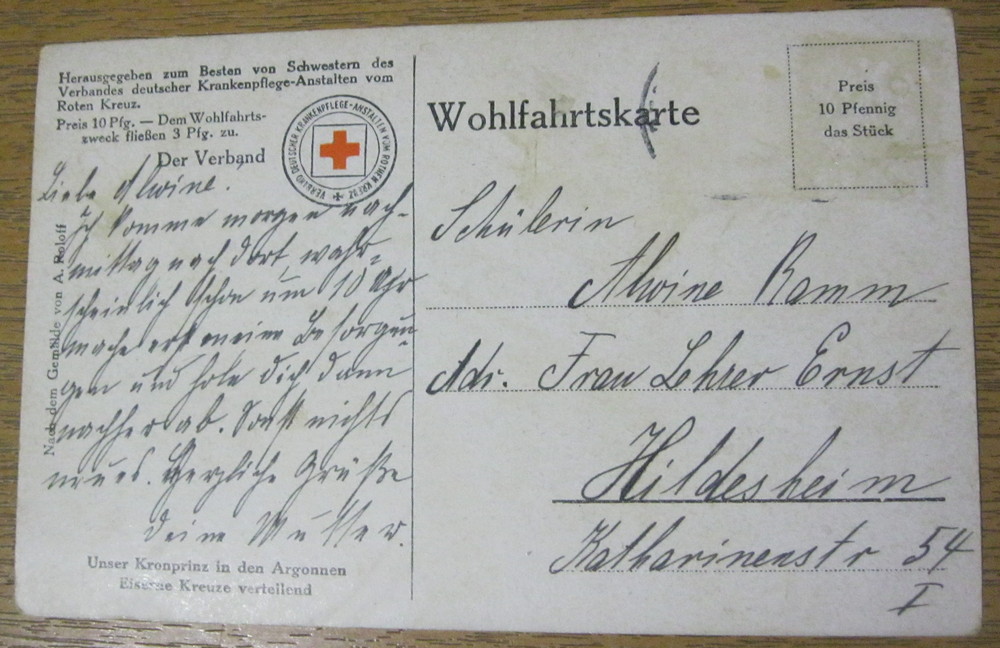 Herausgegeben zum Besten von Schwestern des
Verbandes deutscher Krankenpflege-Anstalten vom
Roten Kreuz.
Preis 10 Pfg. — Dem Wohlfahrts-
zweck fließen 3 Pfg. zu.
Der Verband
VERBAND DEUTSCHER KRANKENPFLEGE-ANSTALTEN VOM ROTHEN KREUZ
Liebe Alwine!
Ich komme morgen nach-
mittag nach dort, wahr-
scheinlich schon um 10 Uhr
mache erst meine Besorgun-
gen und hole dich dann
nachher ab. Sonst nichts
neues. Herzliche Grüße
deine Mutter.
Nach dem Gemälde von A. Roloff
Unser Kronprinz in den Argonnen
Eiserne Kreuze verteilend
Wohlfahrtskarte
Preis
10 Pfennig
das Stück
Schülerin
Alwine Ramm
Adr. Frau Lehrer Ernst
Hildesheim
Katharinenstr 54
I